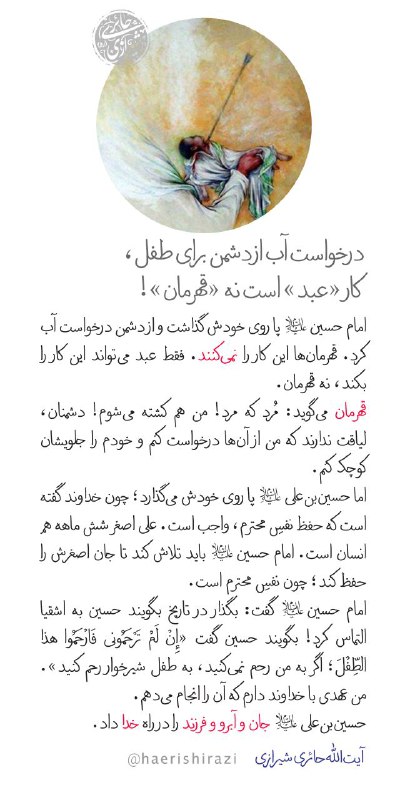 درخواست آب از دشمن برای طفل،
کار «عبد» است نه «قهرمان»!
امام حسین علیه‌السلام پا روی خودش گذاشت و از دشمن درخواست آب
کرد. قهرمان‌ها این کار را نمی‌کنند. فقط عبد می‌تواند این کار را
بکند، نه قهرمان.
قهرمان می‌گوید: مُرد که مرد! من هم کشته می‌شوم! دشمنان،
لیاقت ندارند که من از آن‌ها درخواست کنم و خودم را جلویشان
کوچک کنم.
اما حسین‌بن‌علی علیه‌السلام پا روی خودش می‌گذارد؛ چون خداوند گفته
است که حفظ نفسِ محترم، واجب است. علی اصغر شش ماهه هم
انسان است. امام حسین علیه‌السلام باید تلاش کند تا جان اصغرش را
حفظ کند؛ چون نفسِ محترم است.
امام حسین علیه‌السلام گفت: بگذار در تاریخ بگویند حسین به اشقیا
التماس کرد! بگویند حسین گفت «إِنْ لَمْ تَرْحَمُونی فَارْحَمُوا هذَا
الطِّفْلَ؛ اگر به من رحم نمی‌کنید، به طفل شیرخوار رحم کنید».
من عهدی با خداوند دارم که آن را انجام می‌دهم.
حسین‌بن‌علی علیه‌السلام جان و آبرو و فرزند را در راه خدا داد.
آیت‌الله حائری شیرازی @haerishirazi